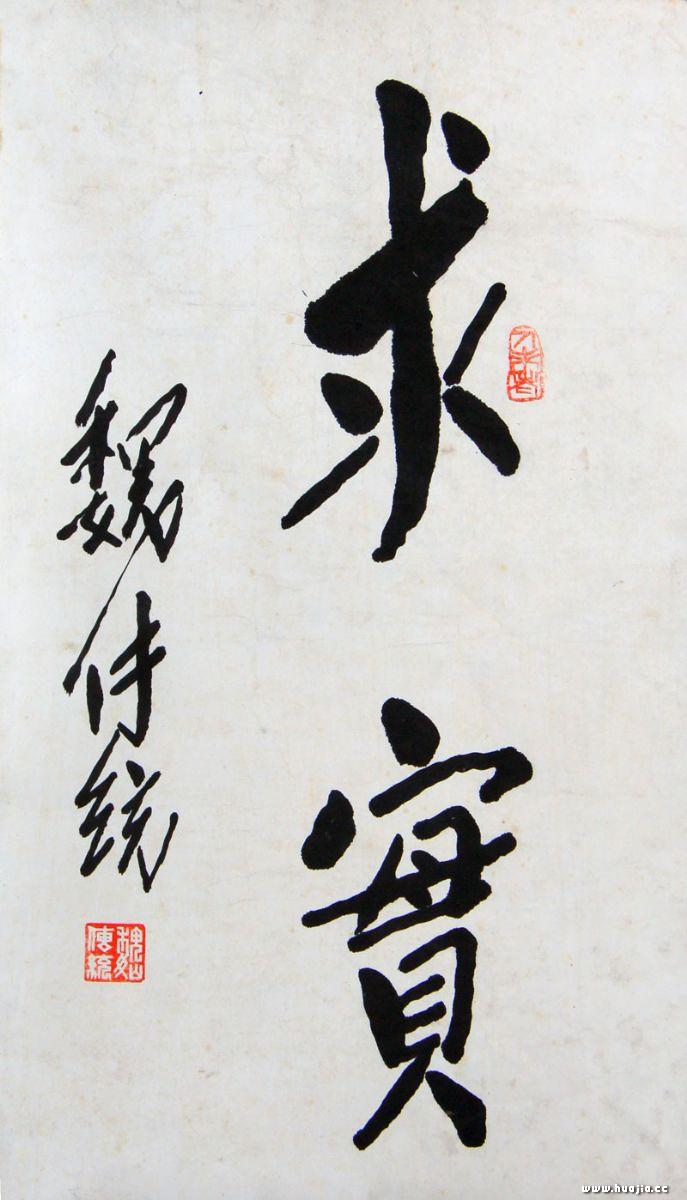 求實
魏传统
魏傳統
www.huajia.cc